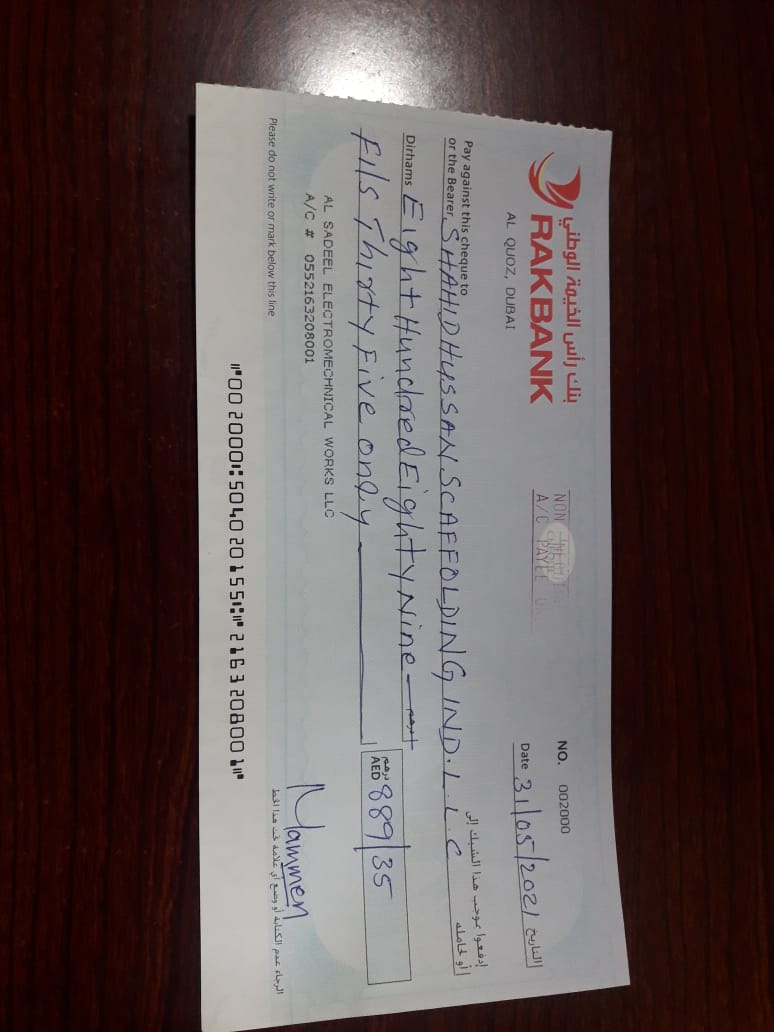 بنك رأس الخيمة الوطني
RAKBANK
AL QUOZ, DUBAI
NON
A/C PAYEE
NO. 002000
Date 31/05/2021 التاريخ
Pay against this cheque to
or the Bearer SHAHID HUSSAN SCAFFOLDING IND. L. L. C
إدفعوا بموجب هذا الشيك إلى
أو لحامله
Dirhams Eight Hundred Eighty Nine — درهم
Fils Thirty Five only
درهم
AED 889/35
AL SADEEL ELECTROMECHNICAL WORKS LLC
A/C # 0552163208001
Mammen
Please do not write or mark below this line
الرجاء عدم الكتابة أو وضع أي علامة تحت هذا الخط
⑈002000⑆504020155⑆⑈2163208001⑈